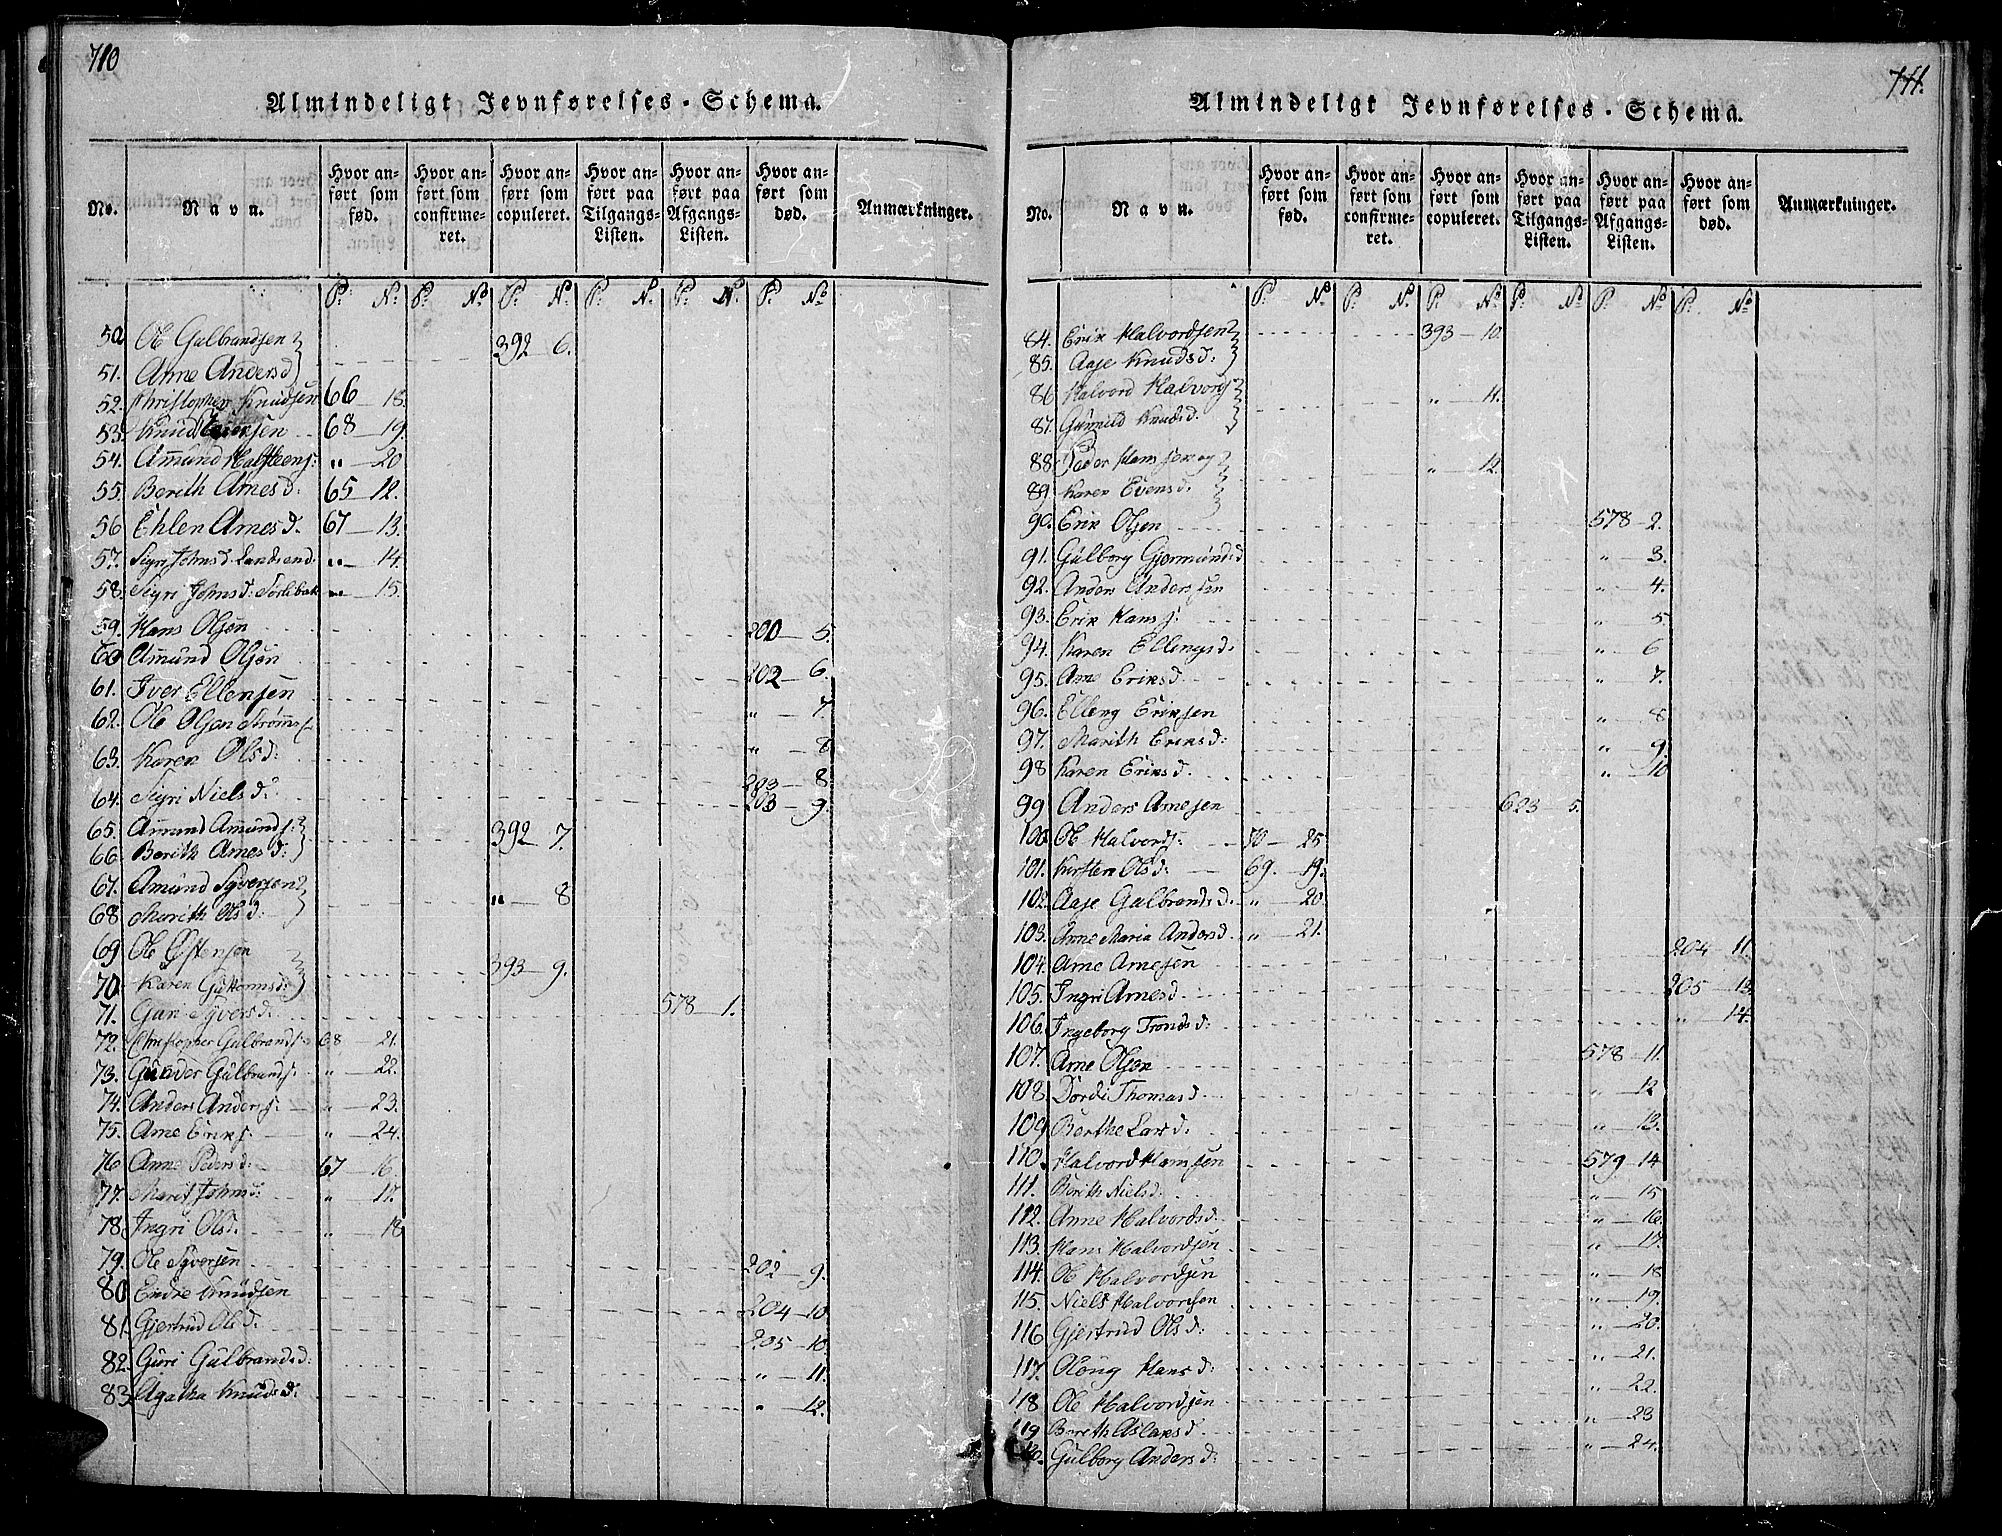 710
Almindeligt Jevnførelses-Schema.
No. Navn. Hvor anført som fød. Hvor anført som confirmeret. Hvor anført som copuleret. Hvor anført paa Tilgangs-Listen. Hvor anført paa Afgangs-Listen. Hvor anført som død. Anmærkninger.
P. No. P. No. P. No. P. No. P. No. P. No.
50. Ole Gulbrandsen 392 - 6.
51. Anne Andersd
52. Christopher Knudsen 66 - 18.
53. Knud Eriksen 68 - 19.
54. Amund Halsteens: " - 20
55. Berith Arnesd: 65 - 12.
56 Ehlen Arnesd. 67 - 13.
57. Sigri Johnsd. Landsend. " - 14.
58. Sigri Johnsd: Sørlibak " - 15.
59. Hans Olsen 200 - 5.
60 Amund Olsen 202 - 6.
61. Iver Ellensen " - 7.
62. Ole Olsen Strømm " - 8
63. Karen Olsd: 203 - 8
64. Sigri Nielsd: 203 - 9.
65. Amund Amunds: 392 - 7.
66. Berith Arnesd:
67. Amund Syversen " - 8
68 Marith Olsd:
69 Ole Østensen 393 - 9.
70. Karen Guttormsd:
71. Guri Syversd: 578 - 1.
72. Christopher Gulbrands: 68 - 21.
73. Gunder Gulbrands: " - 22.
74. Anders Anders: " - 23.
75. Arne Eriks: " - 24.
76 Anne Pedersd: 67 16.
77. Marit Johnsd: " - 17.
78. Ingri Olsd. " - 18
79. Ole Syversen 202 - 9.
80 Endre Knudsen 204 - 10.
81. Gjertrud Olsd: 205 - 10.
82. Guri Gulbrandsd: " - 11.
83. Agatha Knudsd: " - 12.
711.
Almindeligt Jevnførelses-Schema.
No. Navn. Hvor anført som fød. Hvor anført som confirmeret. Hvor anført som copuleret. Hvor anført paa Tilgangs-Listen. Hvor anført paa Afgangs-Listen. Hvor anført som død. Anmærkninger.
P. No. P. No. P. No. P. No. P. No. P. No.
84. Erik Halvordsen 393 - 10.
85. Aase Knudsd:
86 Halvord Halvors: " - 11.
87. Gunnild Knudsd.
88. Peder Hansen og " - 12.
89. Karen Evensd:
90. Erik Olsen 578 - 2.
91. Gulborg Gjermundsd " - 3.
92. Anders Andersen " - 4.
93. Erik Hans: " - 5
94. Karen Ellingsd. " - 6
95. Arne Eriksd. " - 7.
96. Elleng Eriksen " - 8
97. Marith Eriksd: " - 9.
98 Karen Eriksd. " - 10
99 Anders Arnesen 623 5.
100. Ole Halvords: 70 - 25
101. Kirsten Olsd: 69. - 19.
102. Aase Gulbrandsd. " - 20
103. Anne Maria Andersd. " - 21.
104. Arne Arnesen 204 - 11.
105. Ingri Arnesd. 205 - 13.
106. Ingeborg Trondsd: " - 14.
107. Arne Olsen 578 - 11.
108. Dordi Thomasd. " - 12
109 Berthe Larsd. " - 13.
110. Halvord Hansen 579 - 14
111. Berith Nielsd. " - 15
112. Anne Halvordsd. " - 16.
113. Hans Halvordsen " - 17.
114. Ole Halvordsen " - 18
115. Niels Halvorsen " - 19.
116 Gjertrud Olsd: " - 20.
117. Oloug Hansd: " - 21.
118 Ole Halvordsen " - 22.
119 Berith Aslaksd. " - 23
Gulborg Andersd: " - 24.